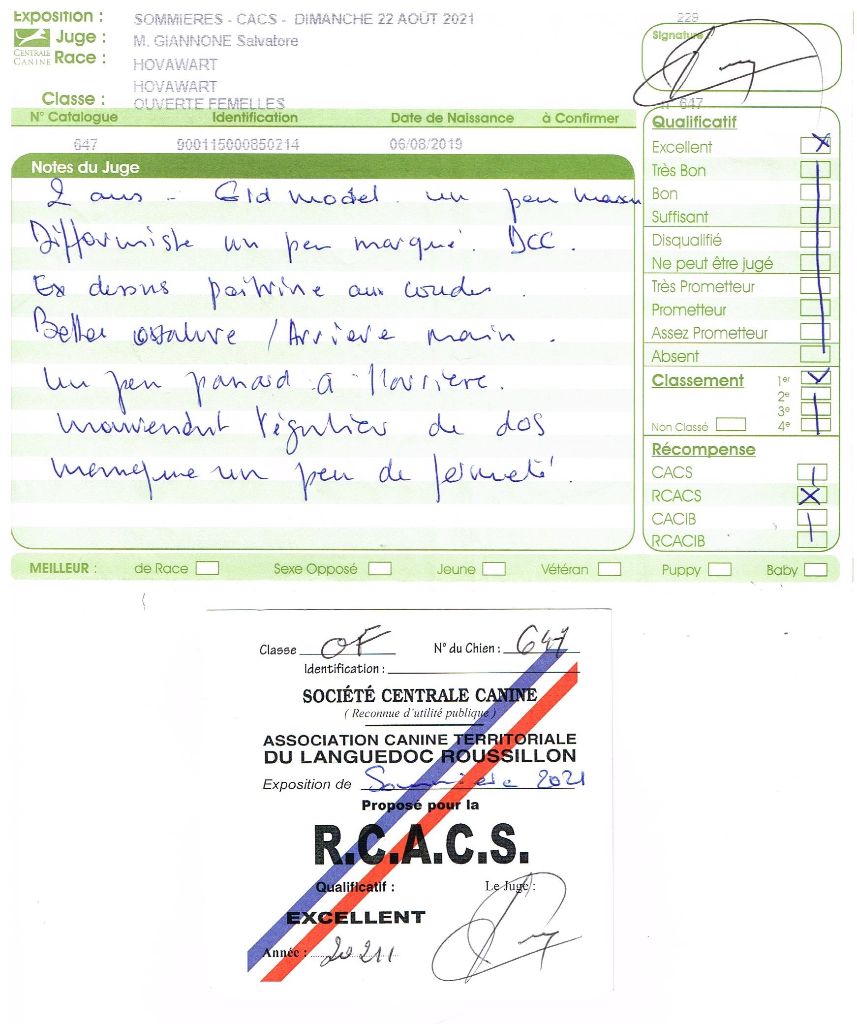 Exposition : SOMMIERES - CACS - DIMANCHE 22 AOÛT 2021
229
CENTRALE CANINE
Juge : M. GIANNONE Salvatore
Signature
Race : HOVAWART
HOVAWART
Classe : OUVERTE FEMELLES
N° 647
N° Catalogue Identification Date de Naissance à Confirmer
647 900115000850214 06/08/2019
Notes du Juge
2 ans - Gld model. un peu
un peu marqué. DCC.
Ex dessus poitrine aux coudes.
ossature / Arrière main.
Un peu panard à l'arrière.
Mouvement régulier de dos
un peu de fermeté.
Qualificatif
Excellent X
Très Bon
Bon
Suffisant
Disqualifié
Ne peut être jugé
Très Prometteur
Prometteur
Assez Prometteur
Absent
Classement 1er
2e
3e
Non Classé 4e
Récompense
CACS
RCACS X
CACIB
RCACIB
MEILLEUR : de Race Sexe Opposé Jeune Vétéran Puppy Baby
Classe OF N° du Chien : 647
Identification :
SOCIÉTÉ CENTRALE CANINE
( Reconnue d'utilité publique )
ASSOCIATION CANINE TERRITORIALE
DU LANGUEDOC ROUSSILLON
Exposition de Sommière 2021
Proposé pour la
R.C.A.C.S.
Qualificatif : Le Juge :
EXCELLENT
Année :